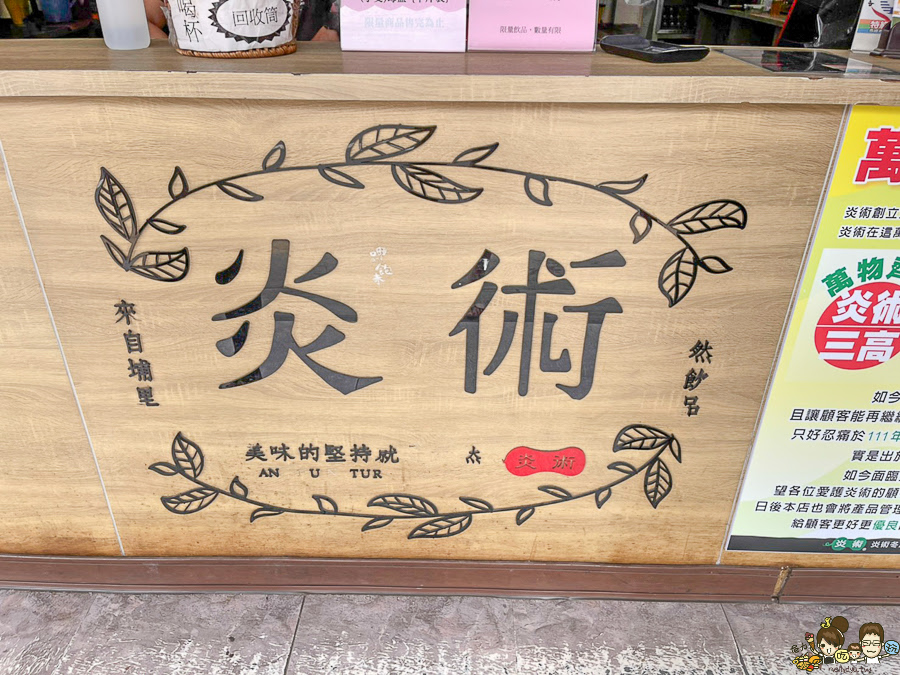 喝杯
回收筒
限量商品售完為止
限量飲品，數量有限
炎術
來自埔里
美味的堅持就
AN U TUR
炎術
萬
炎術創立
炎術在這萬
萬物
炎術
三高
如今
且讓顧客能再繼續
只好忍痛於111年
實是出於
如今面臨
望各位愛護炎術的顧
日後本店也會將產品管理
給顧客更好更優良
炎術 炎術冬